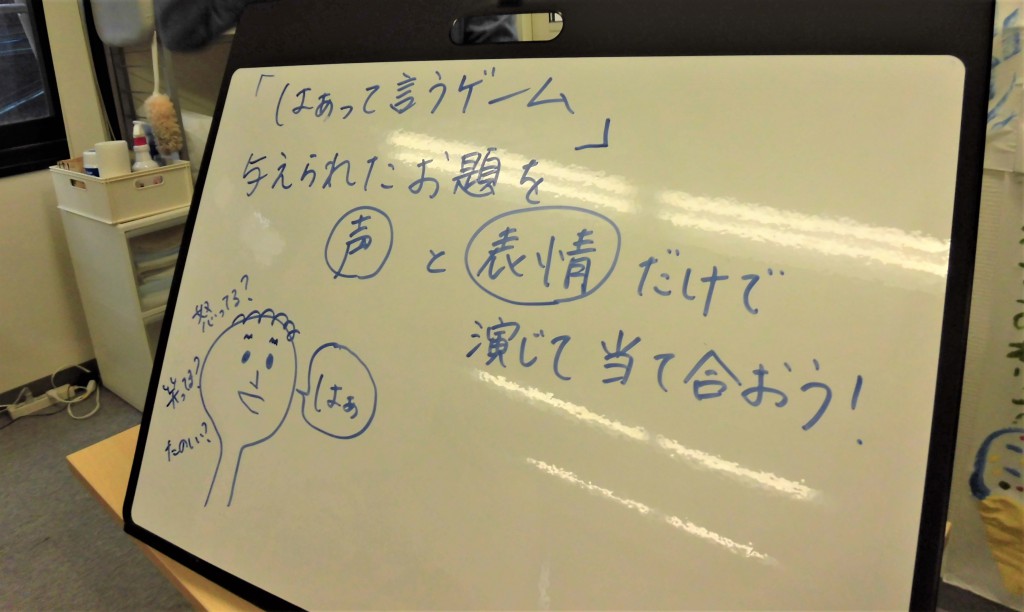 「はぁって言うゲーム」
与えられたお題を
声と表情だけで
演じて当て合おう!
怒ってる?
笑ってる?
たのしい?
はぁ